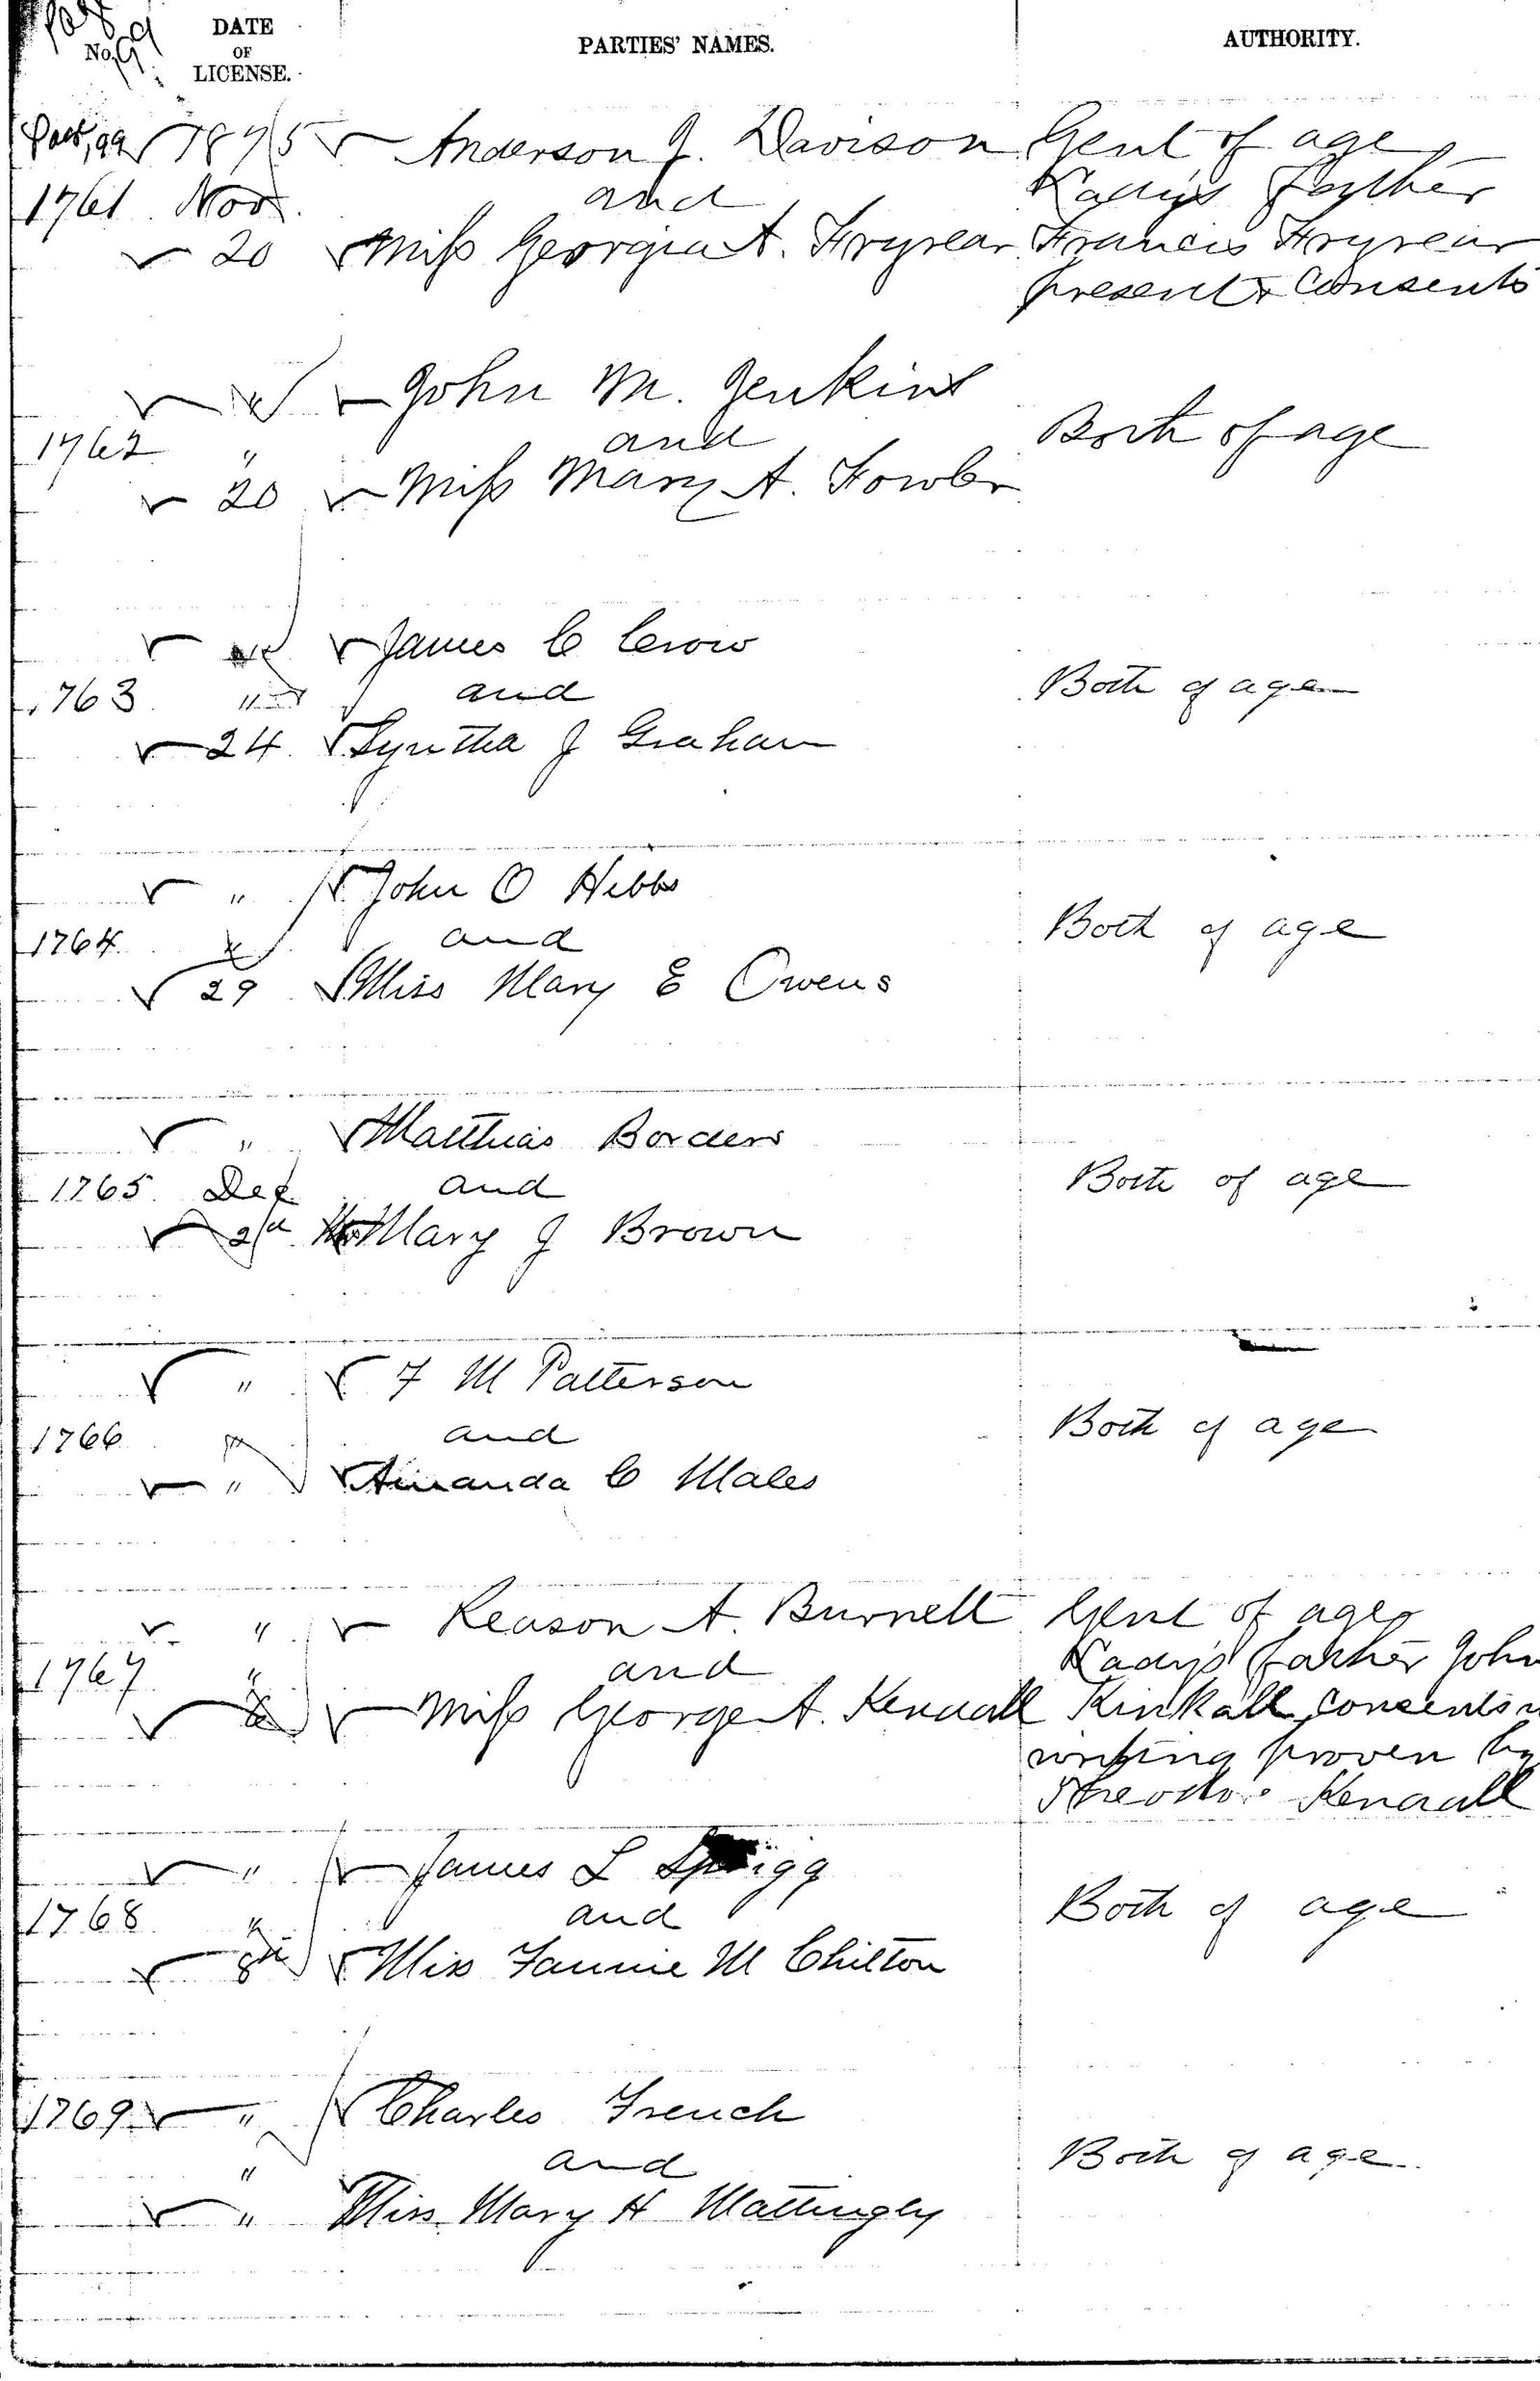 Page 99
No.
DATE OF LICENSE.
PARTIES' NAMES.
AUTHORITY.
1875 Anderson J. Davison Gent of age
1761 Nov. and Lady's father
20 Miss Georgia A. Fryrear Francis Fryrear
present & consents
John M. Jenkins
1762 " and Both of age
20 Miss Mary A. Fowler
James C Crow
1763 " and Both of age
24 Syntha J Graham
" John O Hibbs
1764 and Both of age
29 Miss Mary E Owens
" Matthias Borders
1765 Dec and Both of age
2d Mary J Brown
" F M Patterson
1766 and Both of age
" Amanda C Males
" Reason A. Burnett Gent of age
1767 " and Lady's father John
Miss George A. Kendall Kinkall consents
writing proven by
Kendall
" James L Sprigg
1768 " and Both of age
8th Miss Fannie M Chilton
1769 " Charles French
" and Both of age
" Miss Mary H Mattingly